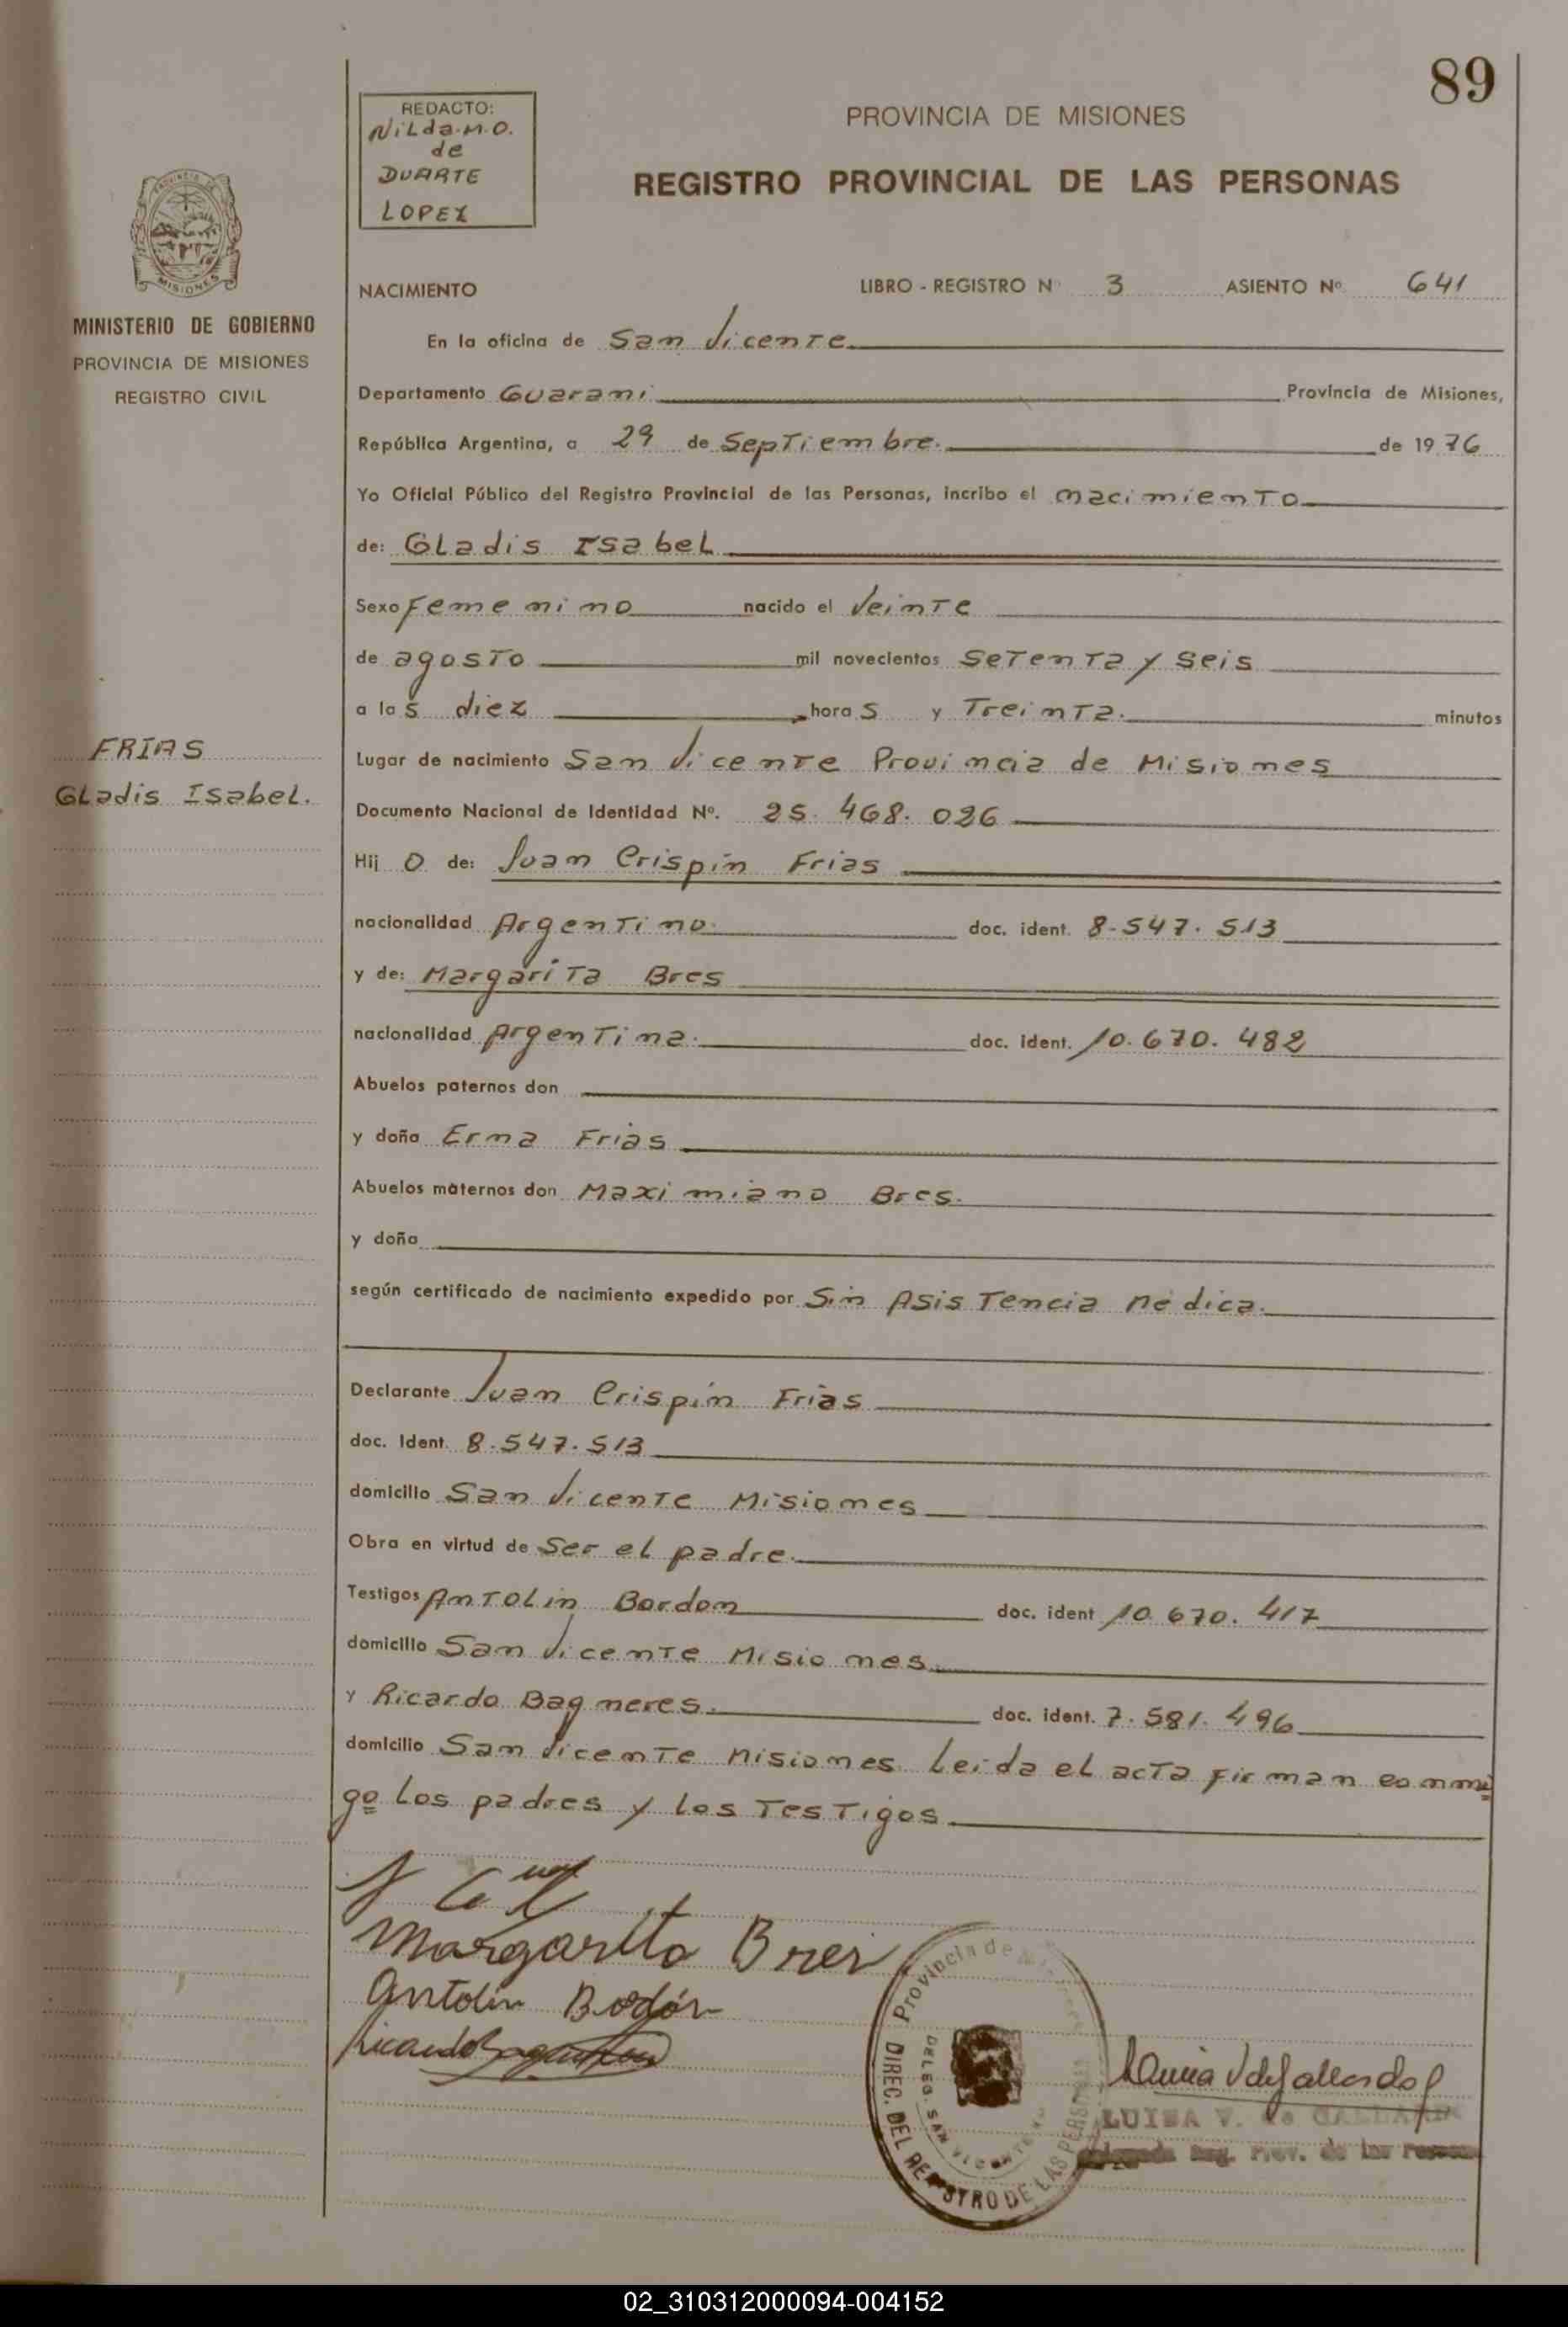 89
REDACTO:
Nilda.M.O.
de
DUARTE
LOPEZ
PROVINCIA DE MISIONES
REGISTRO PROVINCIAL DE LAS PERSONAS
MISIONES
MINISTERIO DE GOBIERNO
PROVINCIA DE MISIONES
REGISTRO CIVIL
NACIMIENTO LIBRO - REGISTRO N° 3 ASIENTO Nº 641
En la oficina de San Vicente
Departamento Guarani Provincia de Misiones,
República Argentina, a 29 de Septiembre. de 1976
Yo Oficial Público del Registro Provincial de las Personas, incribo el nacimiento
de: Gladis Isabel
Sexo Femenino nacido el Veinte
de agosto mil novecientos Setenta y Seis
a las diez horas y Treinta. minutos
FRIAS
Gladis Isabel.
Lugar de nacimiento San Vicente Provincia de Misiones
Documento Nacional de Identidad Nº. 25.468.026
Hij o de: Juan Crispín Frias
nacionalidad Argentino. doc. ident. 8.547.513
y de: Margarita Bres
nacionalidad Argentina. doc. ident. 10.670.482
Abuelos paternos don
y doña Erma Frias
Abuelos maternos don Maximiano Bres.
y doña
según certificado de nacimiento expedido por Sin Asistencia Médica.
Declarante Juan Crispín Frias
doc. Ident. 8.547.513
domicilio San Vicente Misiones
Obra en virtud de Ser el padre.
Testigos Antolin Bordon doc. ident 10.670.417
domicilio San Vicente Misiones.
y Ricardo Bagneres. doc. ident. 7.581.496
domicilio San Vicente Misiones Leida el acta firman conmi
go los padres y los Testigos
Margarita Bres
Antolín Bordón
Ricardo
Provincia de
DIREC. DEL REGISTRO DE LAS PERSONAS
DELEG. SAN VICENTE
LUISA V. de GALLARDO
Reg. Prov. de las Personas
02_310312000094-004152